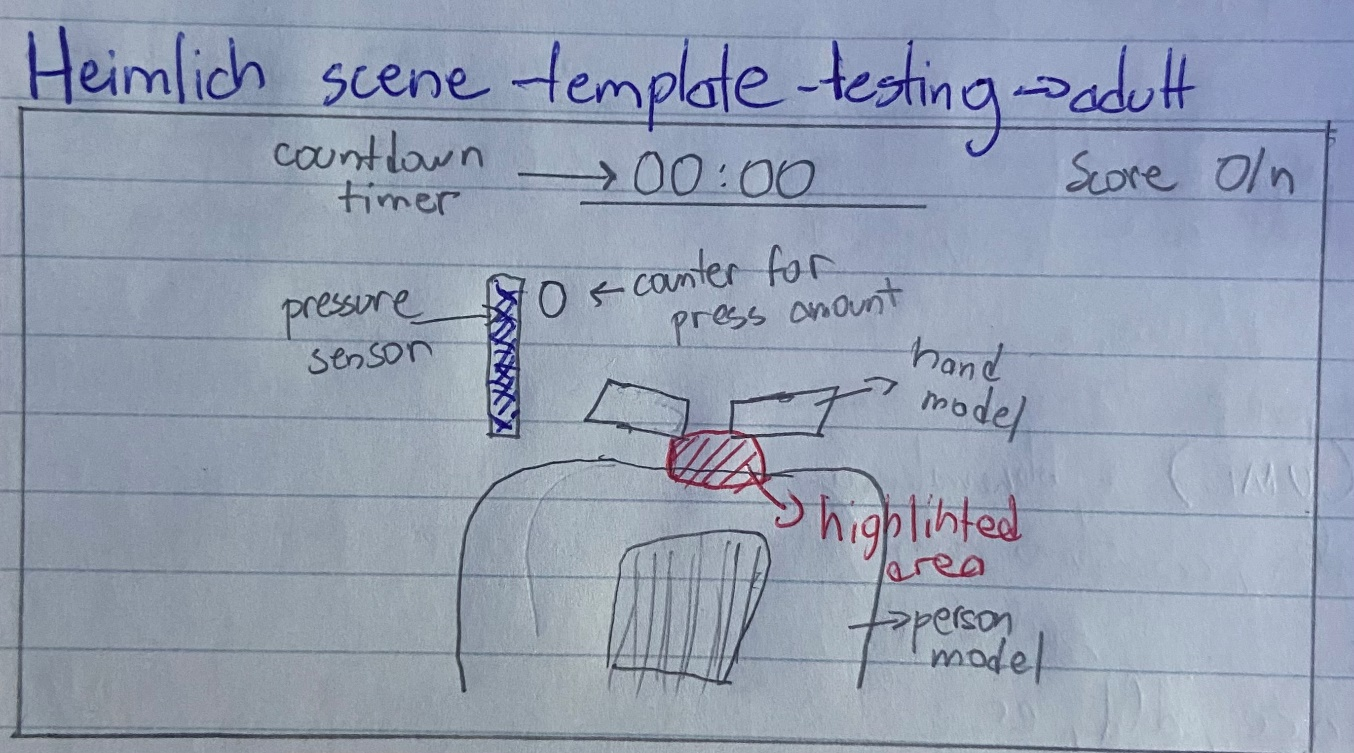 Heimlich scene template testing → adult
countdown
timer
→ 00:00
Score 0/n
pressure
senson
0 ← counter for
press amount
hand
model
highlinted
area
person
model